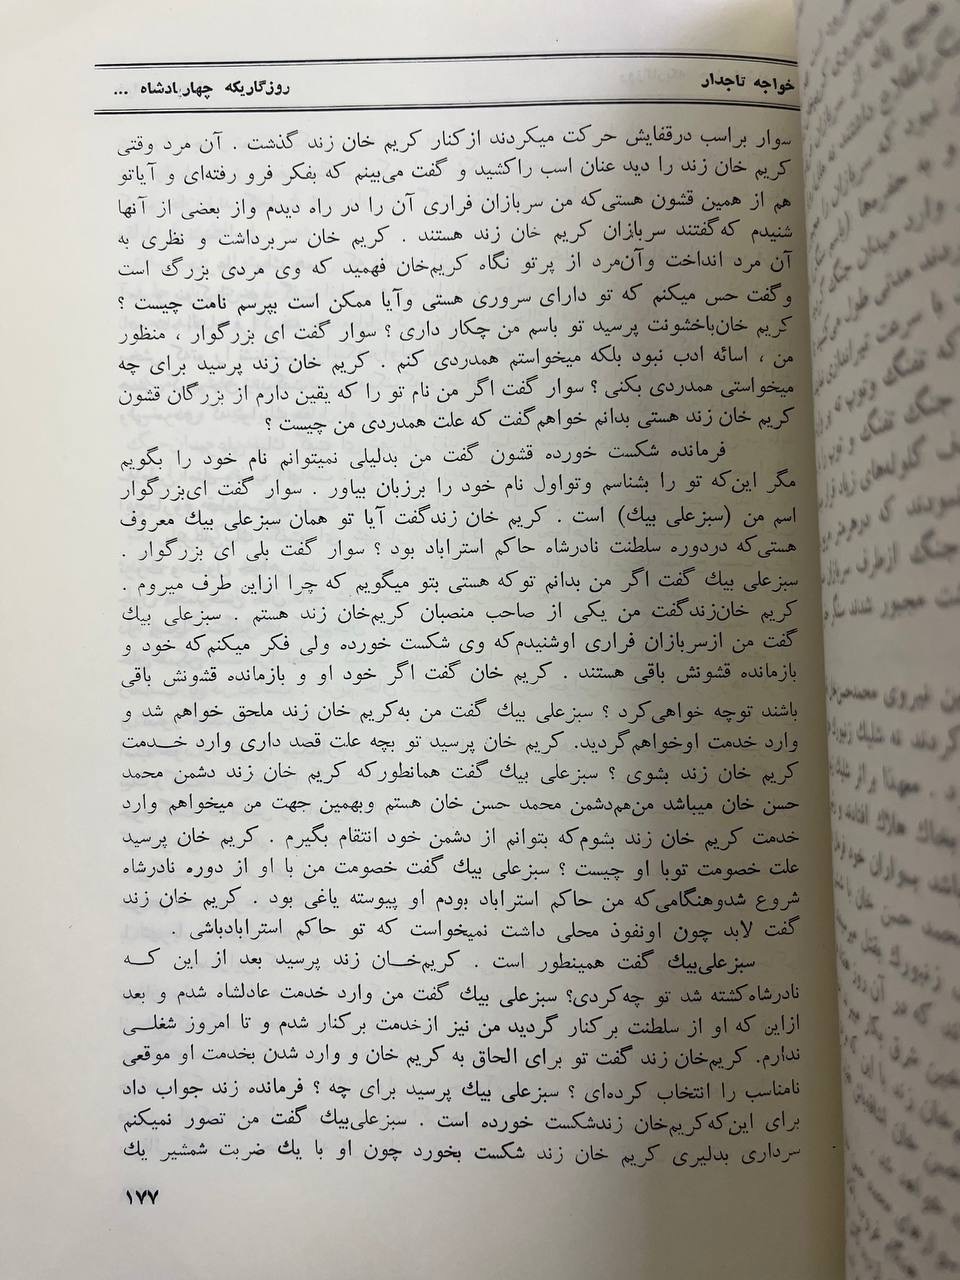 خواجه تاجدار
روزگاریکه چهارپادشاه ...
سوار براسب درقفایش حرکت میکردند ازکنار کریم خان زند گذشت . آن مرد وقتی
کریم خان زند را دید عنان اسب راکشید و گفت می‌بینم که بفکر فرو رفته‌ای و آیاتو
هم از همین قشون هستی‌که من سربازان فراری آن را در راه دیدم واز بعضی از آنها
شنیدم که‌گفتند سربازان کریم خان زند هستند . کریم خان سربرداشت و نظری به
آن مرد انداخت وآن‌مرد از پرتو نگاه کریم‌خان فهمید که وی مردی بزرگ است
وگفت حس میکنم که تو دارای سروری هستی وآیا ممکن است بپرسم نامت چیست ؟
کریم خان‌باخشونت پرسید تو باسم من چکار داری ؟ سوار گفت ای بزرگوار ، منظور
من ، اسائه ادب نبود بلکه میخواستم همدردی کنم . کریم خان زند پرسید برای چه
میخواستی همدردی بکنی ؟ سوار گفت اگر من نام تو را که یقین دارم از بزرگان قشون
کریم خان زند هستی بدانم خواهم‌گفت که علت همدردی من چیست ؟
فرمانده شکست خورده قشون گفت من بدلیلی نمیتوانم نام خود را بگویم
مگر این‌که تو را بشناسم وتواول نام خود را برزبان بیاور . سوار گفت ای‌بزرگوار
اسم من (سبزعلی بیك) است . کریم خان زندگفت آیا تو همان سبزعلی بیك معروف
هستی‌که دردوره سلطنت نادرشاه حاکم استراباد بود ؟ سوار گفت بلی ای بزرگوار .
سبزعلی بیك گفت اگر من بدانم توکه هستی بتو میگویم که چرا ازاین طرف میروم .
کریم خان‌زندگفت من یکی از صاحب منصبان کریم‌خان زند هستم . سبزعلی بیك
گفت من ازسربازان فراری اوشنیدم‌که وی شکست خورده ولی فکر میکنم‌که خود و
بازمانده قشونش باقی هستند . کریم خان گفت اگر خود او و بازمانده قشونش باقی
باشند توچه خواهی‌کرد ؟ سبزعلی بیك گفت من به‌کریم خان زند ملحق خواهم شد و
وارد خدمت اوخواهم‌گردید. کریم خان پرسید تو بچه علت قصد داری وارد خـدمت
کریم خان زند بشوی ؟ سبزعلی بیك گفت همانطورکه کریم خان زند دشمن محمد
حسن خان میباشد من‌هم‌دشمن محمد حسن خان هستم وبهمین جهت من میخواهم وارد
خدمت کریم خان زند بشوم‌که بتوانم از دشمن خود انتقام بگیرم . کریم خان پرسید
علت خصومت توبا او چیست ؟ سبزعلی بیك گفت خصومت من با او از دوره نادرشاه
شروع شدوهنگامی‌که من حاکم استراباد بودم او پیوسته یاغی بود . کریم خان زند
گفت لابد چون اونفوذ محلی داشت نمیخواست که تو حاکم استرابادباشی .
سبزعلی‌بیك گفت همینطور است . کریم‌خـان زند پرسید بعد از این کـه
نادرشاه‌کشته شد تو چه‌کردی؟ سبزعلی بیك گفت من وارد خدمت عادلشاه شدم و بعد
ازاین که او از سلطنت برکنار گردید من نیز ازخدمت برکنار شدم و تا امروز شغلـی
ندارم. کریم‌خان زند گفت تو برای الحاق به کریم خان و وارد شدن بخدمت او موقعی
نامناسب را انتخاب کرده‌ای ؟ سبزعلی بیك پرسید برای چه ؟ فرمانده زند جواب داد
برای این‌که‌کریم‌خان زندشکست خورده است . سبزعلی‌بیك گفت من تصور نمیکنم
سرداری بدلیری کریم خان زند شکست بخورد چون او با یك ضربت شمشیر یك
۱۷۷